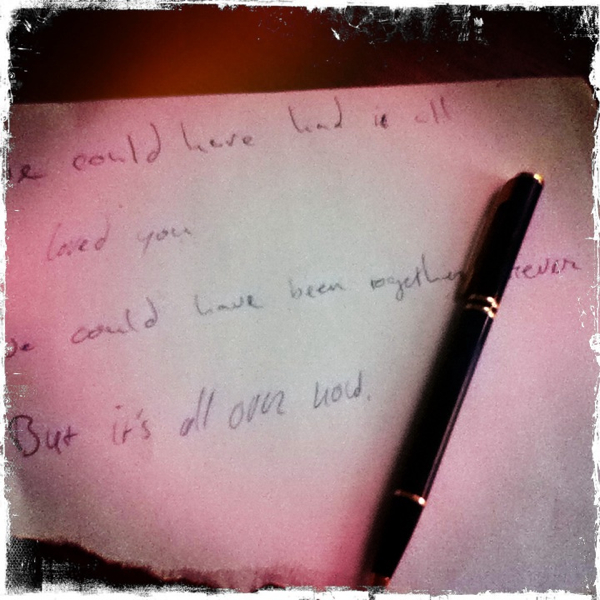 we could have had it all
loved you
we could have been together rever
But it's all over now.